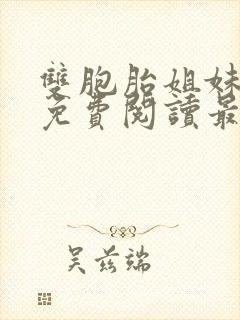 雙胞胎姐妹
免費閱讀最
吴兹端